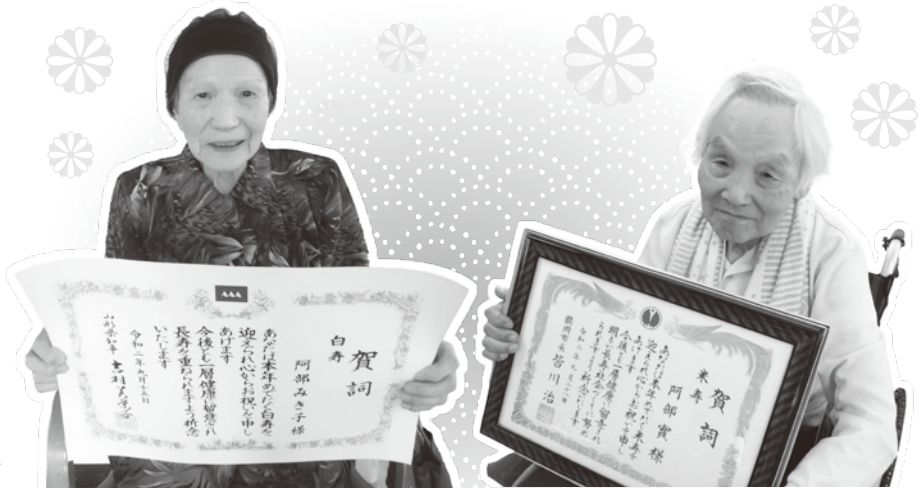 賀詞
白寿
阿部みき子様
あなたは本年めでたく白寿を
迎えられ心からお祝を申し
あげます
今後とも一層健康に留意され
長寿を重ねられますよう祈念
いたします
令和二年九月十五日
山形県知事 吉村美栄子
賀詞
米寿
阿部實様
あなたは本年めでたく米寿を
迎えられ心からお祝い申し
あげます
今後とも一層健康に留意され
明るい長寿社会
令和二年九月
鶴岡市長 皆川治